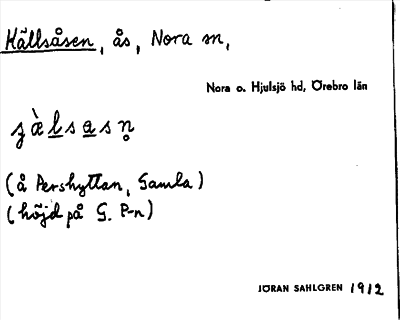 Källsåsen, ås, Nora sn,
Nora o. Hjulsjö hd, Örebro län
(å Pershyttan, Gamla)
(höjd på G. P-n)
JÖRAN SAHLGREN 1912